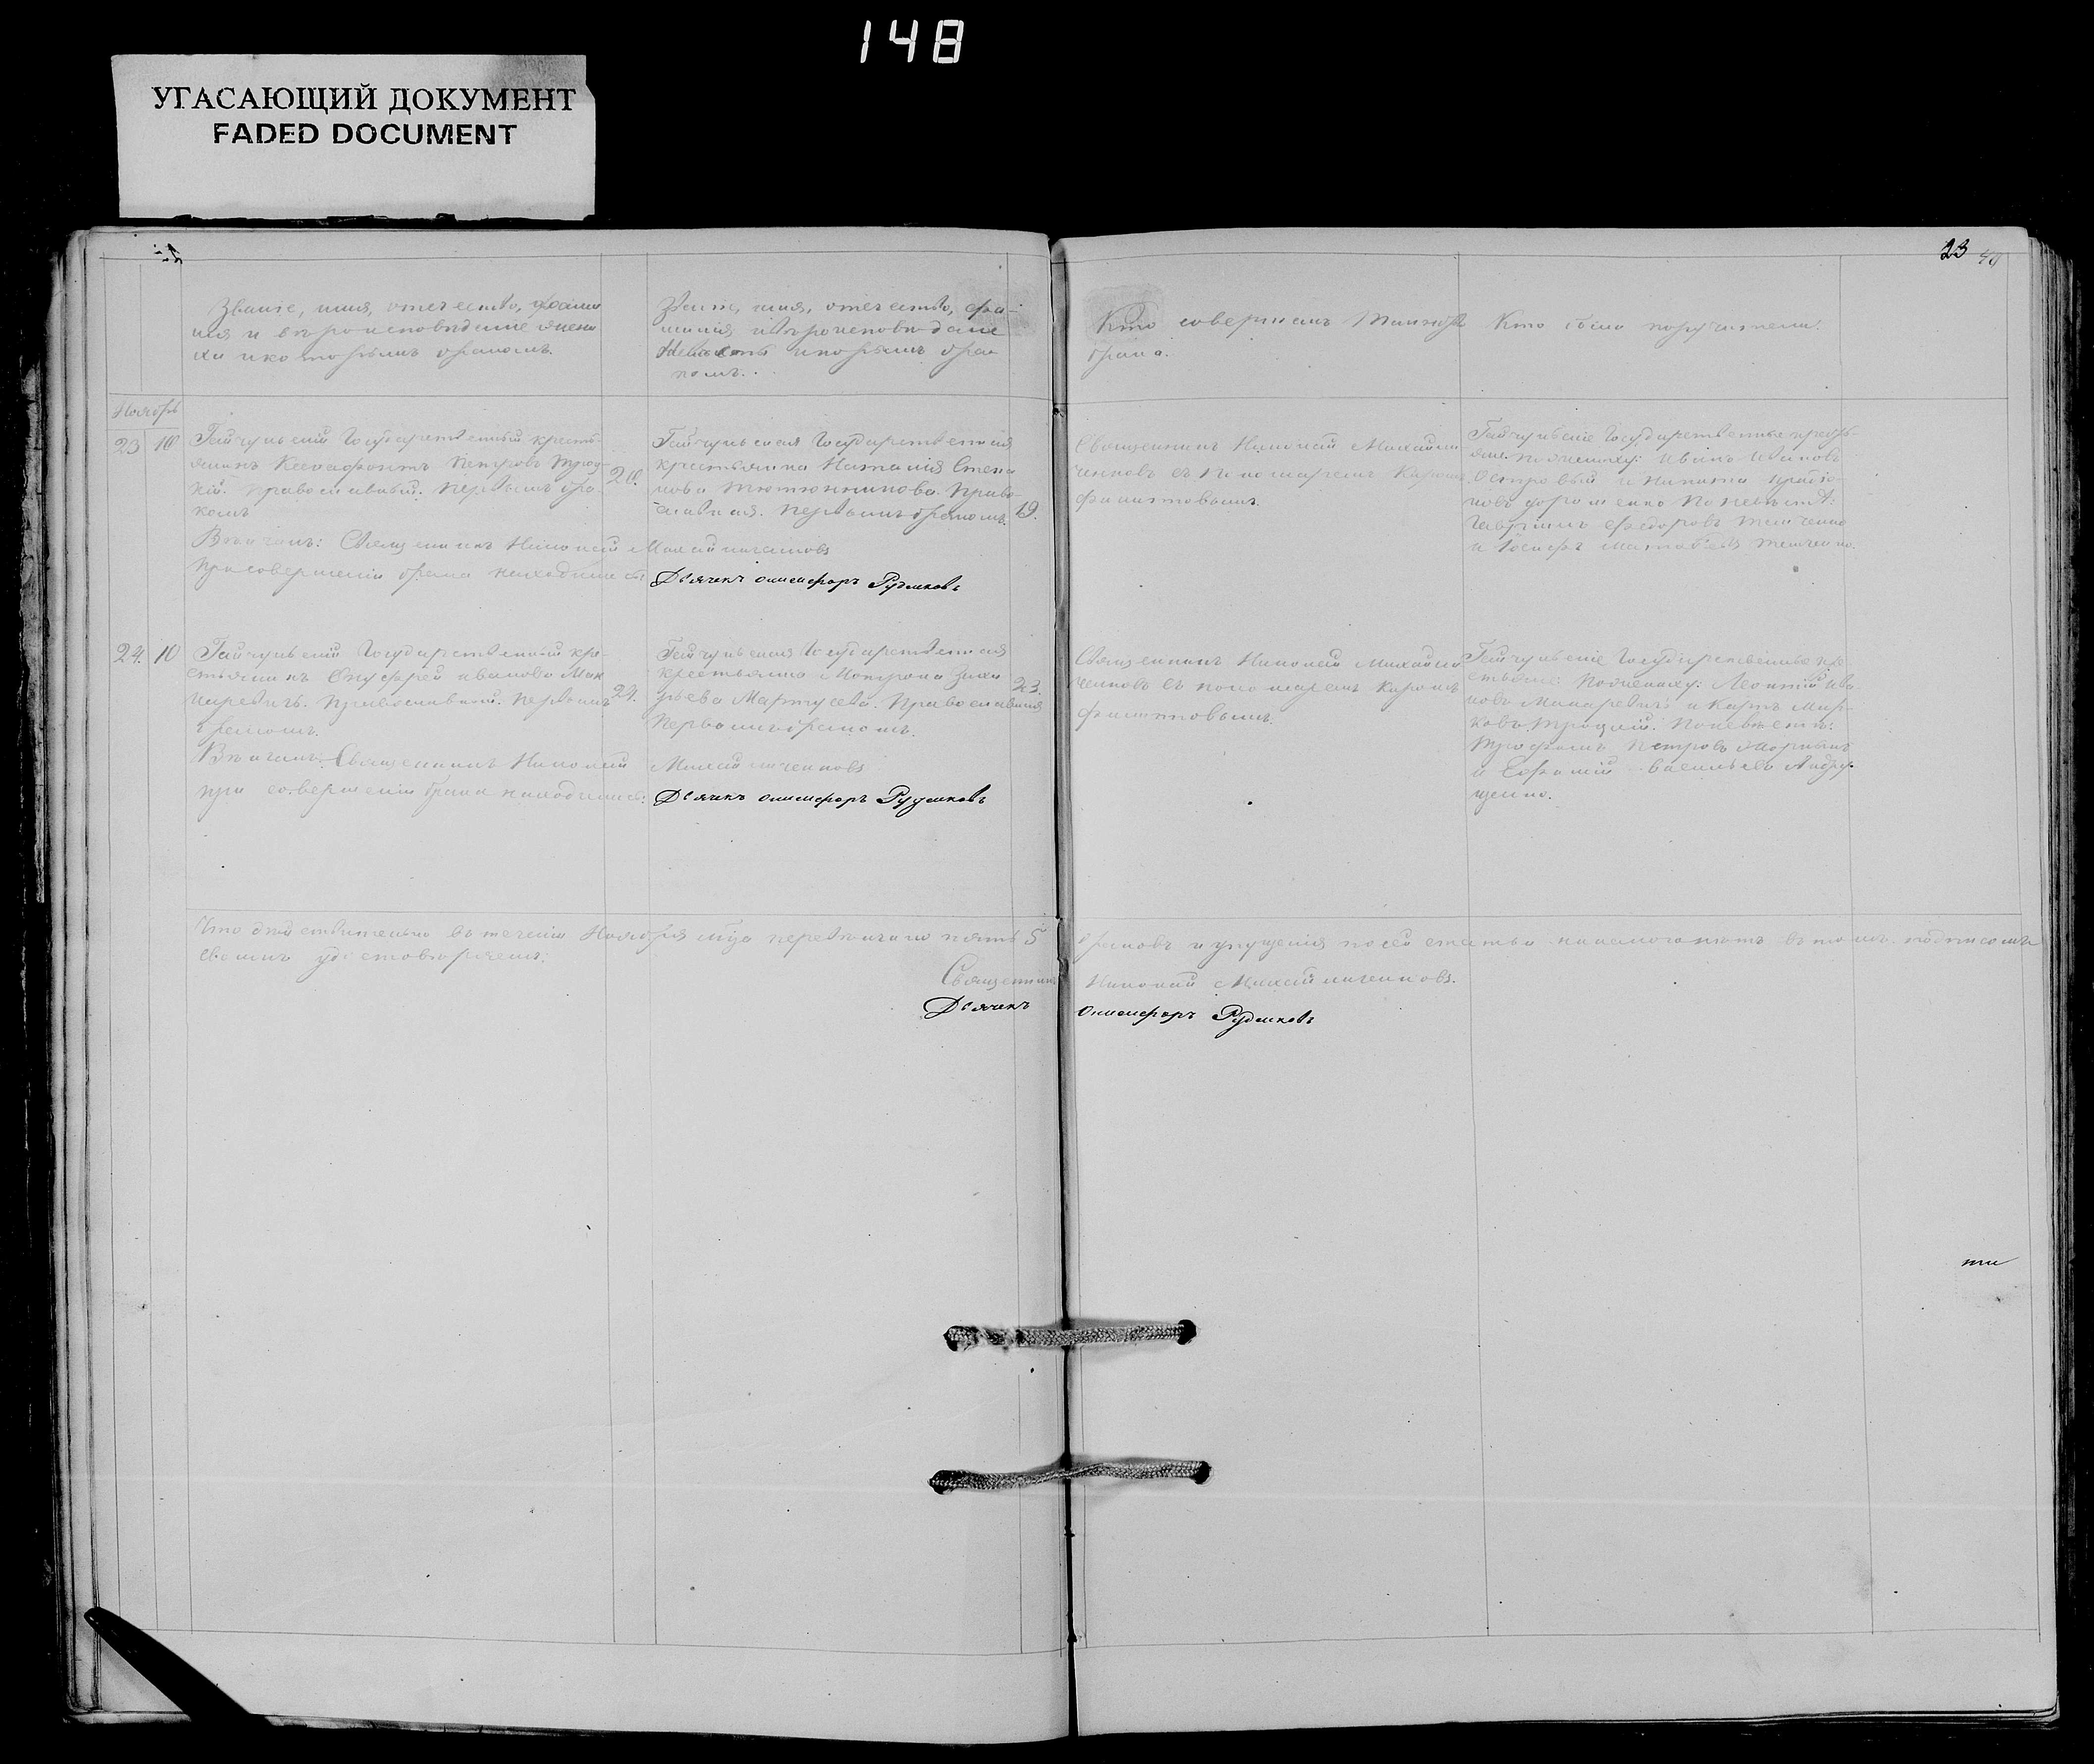 148
УГАСАЮЩИЙ ДОКУМЕНТ
FADED DOCUMENT
23
Званіе, имя, отечество, фами
лія и вѣроисповѣданіе жени
ха и которымъ бракомъ.
Званіе, имя, отечество, фа-
милія и вѣроисповѣданіе
Невѣсты и которымъ бра
комъ.
Кто совершалъ Таинство
брака.
Кто были поручители.
Ноябрь
23 10
Гайчульскій Государственный кресть-
янинъ Ксенофонтъ Петровъ Троц-
кій. Православный. Первымъ бра-
комъ
20.
Гайчульская Государственная
крестьянка Наталія Степа
нова Тютюнникова. Право-
славная. Первымъ бракомъ.
19.
Священникъ Николай Михайли
ченковъ съ Пономаремъ Карпомъ
Филиповымъ.
Гайчульскіе Государственные кресть-
яне. По женихѣ: Иванъ Ивановъ
Островый и Никита
по невѣстѣ:
Гавріилъ Федоровъ Темченко
и Іосифъ Матвѣевъ Темченко.
Вѣнчалъ: Священникъ Николай Михайличенковъ
При совершеніи брака находился
Дьячекъ Онисифоръ Рудиковъ
24. 10
Гайчульскій Государственный кре-
стьянинъ Онуфрій Ивановъ Мак
каревичъ. Православный. Первымъ
бракомъ.
24.
Гайчульская Государственная
крестьянка Мотрона Заха
рьева Матусева. Православная
Первымъ бракомъ.
23.
Священникъ Николай Михайли
ченковъ съ пономаремъ Карпомъ
Филиповымъ.
Гайчульскіе Государственные кре
стьяне: По женихѣ: Леонтій Ива-
новъ Макаревичъ и Карпъ Мар-
ковъ Троцкій. По невѣстѣ:
Трофимъ Петровъ
и Васильевъ Андру-
щенко.
Вѣнчалъ: Священникъ Николай Михайличенковъ
при совершеніи брака находились:
Дьячекъ Онисифоръ Рудиковъ
Что дѣйствительно въ теченіи Ноября м-ца перевѣнчано пять 5 браковъ и упущенія по сей статьи никакого нѣтъ въ томъ подписомъ
своимъ удостовѣряемъ:
Священникъ Николай Михайличенковъ.
Дьячекъ Онисифоръ Рудиковъ
ти